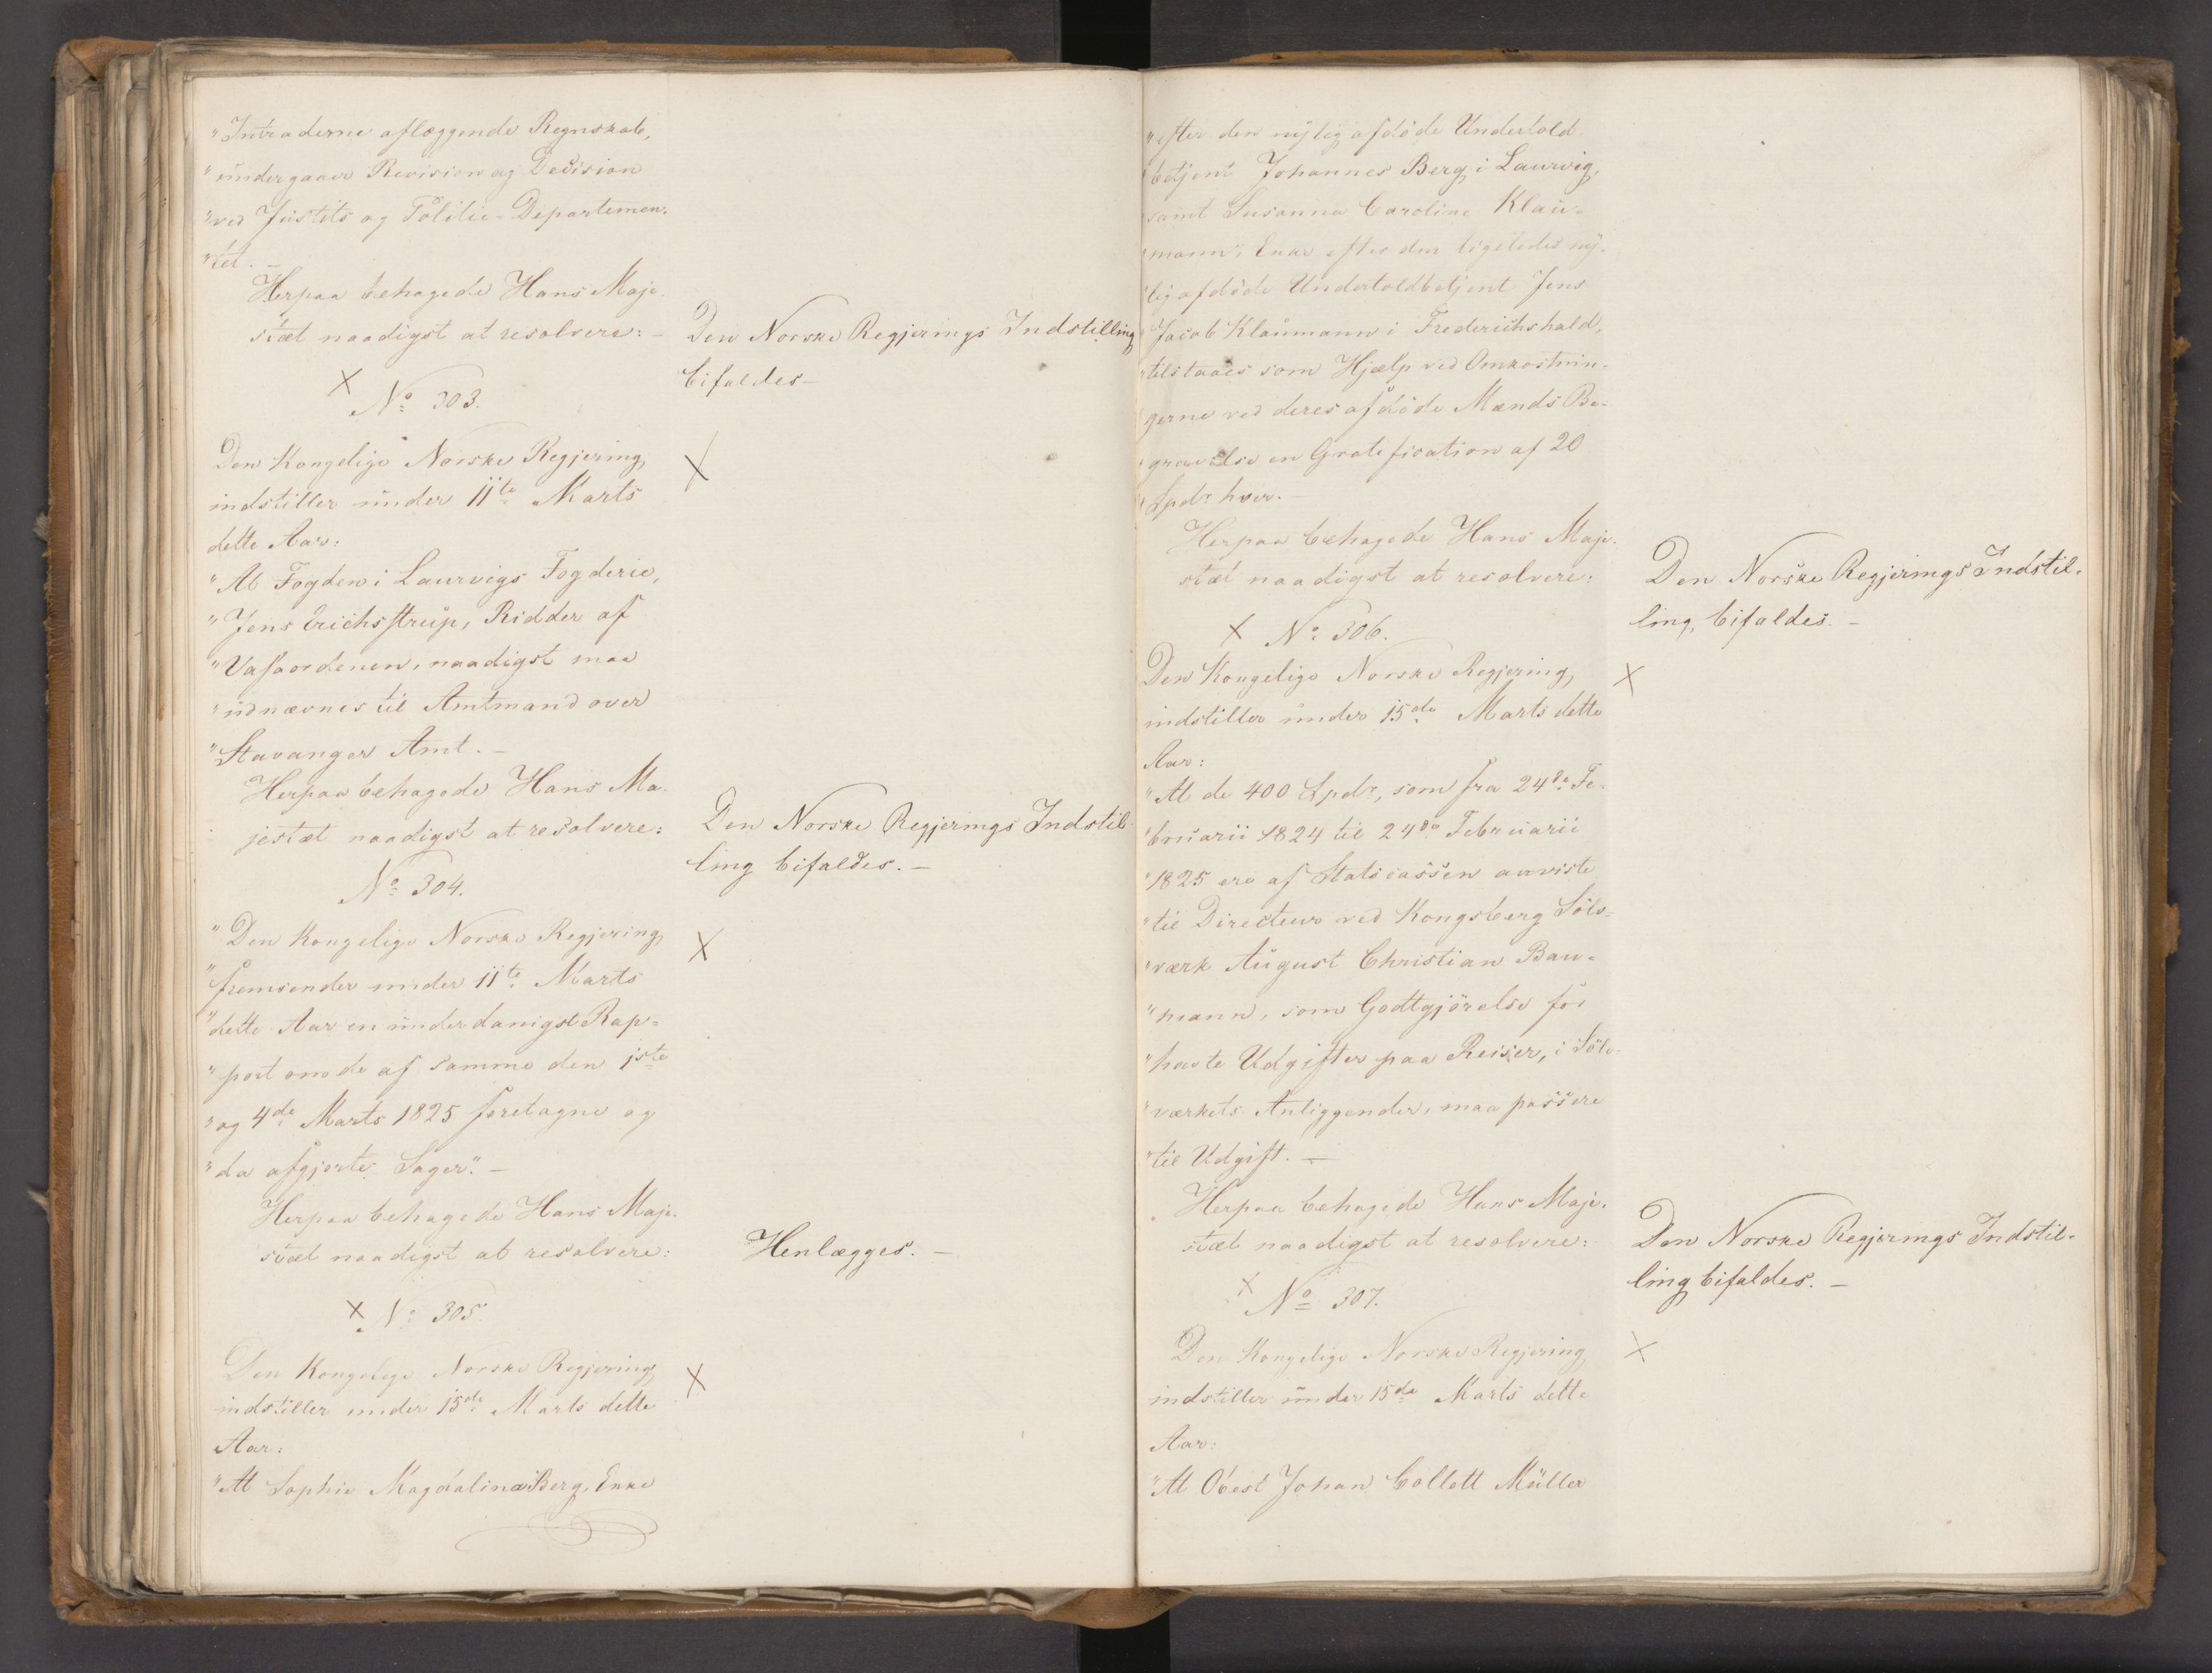 "Intraderne aflæggende Regnskab,
"undergaaer Revision og Decision
"ved Justits og Politie-Departemen-
"tet. –
Herpaa behagede Hans Maje-
stæt naadigst at resolvere: –
Den Norske Regjerings Indstilling
bifaldes –
X
No 303.
Den Kongelige Norske Regjering
X
indstiller under 11te Marts
dette Aar:
"At Fogden i Laurvigs Fogderie,
"Jens Erichsstrup, Ridder af
"Vasaordenen, naadigst maa
"udnævnes til Amtmand over
"Stavanger Amt. –
Herpaa behagede Hans Ma-
jestæt naadigst at resolvere:
Den Norske Regjerings Indstil-
ling bifaldes. –
No 304.
"Den Kongelige Norske Regjering
X
"fremsender under 11te Marts
"dette Aar en underdanigst Rap-
"port om de af samme den 1ste
"og 4de Marts 1825 foretagne og
"da afgjorte Sager". –
Herpaa behagede Hans Maje-
stæt naadigst at resolvere:
Henlægges. –
X No 305.
Den Kongelige Norske Regjering
X
indstiller under 15de Marts dette
Aar:
"At Sophie Magdalina Berg, Enke
"efter den nylig afdöde Undertold-
"betjent Johannes Berg i Laurvig,
"samt Susanna Caroline Klau-
"mann, Enke efter den ligeledes ny-
"lig afdöde Undertoldbetjent Jens
"Jacob Klaumann i Frederichshald,
"tilstaaes som Hjælp ved Omkostnin-
"gerne ved deres afdöde Mænds Be-
"gravelse en Gratification af 20
"Spdr hver. –
Herpaa behagede Hans Maje-
stæt naadigst at resolvere:
Den Norske Regjerings Indstil-
ling bifaldes. –
X No 306.
Den Kongelige Norske Regjering,
X
indstiller under 15de Marts dette
Aar:
"At de 400 Spdr, som fra 24de Fe-
"bruarii 1824 til 24de Februarii
"1825 ere af Statscassen anviste
"til Directeur ved Kongsberg Sölv-
"værk August Christian Bau-
"mann, som Godtgjörelse for
"havte Udgifter paa Reiser, i Sölv-
"værkets Anliggender, maa passere
"til Udgift. –
Herpaa behagede Hans Maje-
stæt naadigst at resolvere:
Den Norske Regjerings Indstil-
ling bifaldes. –
X
No 307.
Den Kongelige Norske Regjering
X
indstiller under 15de Marts dette
Aar:
"At Obest Johan Collett Müller